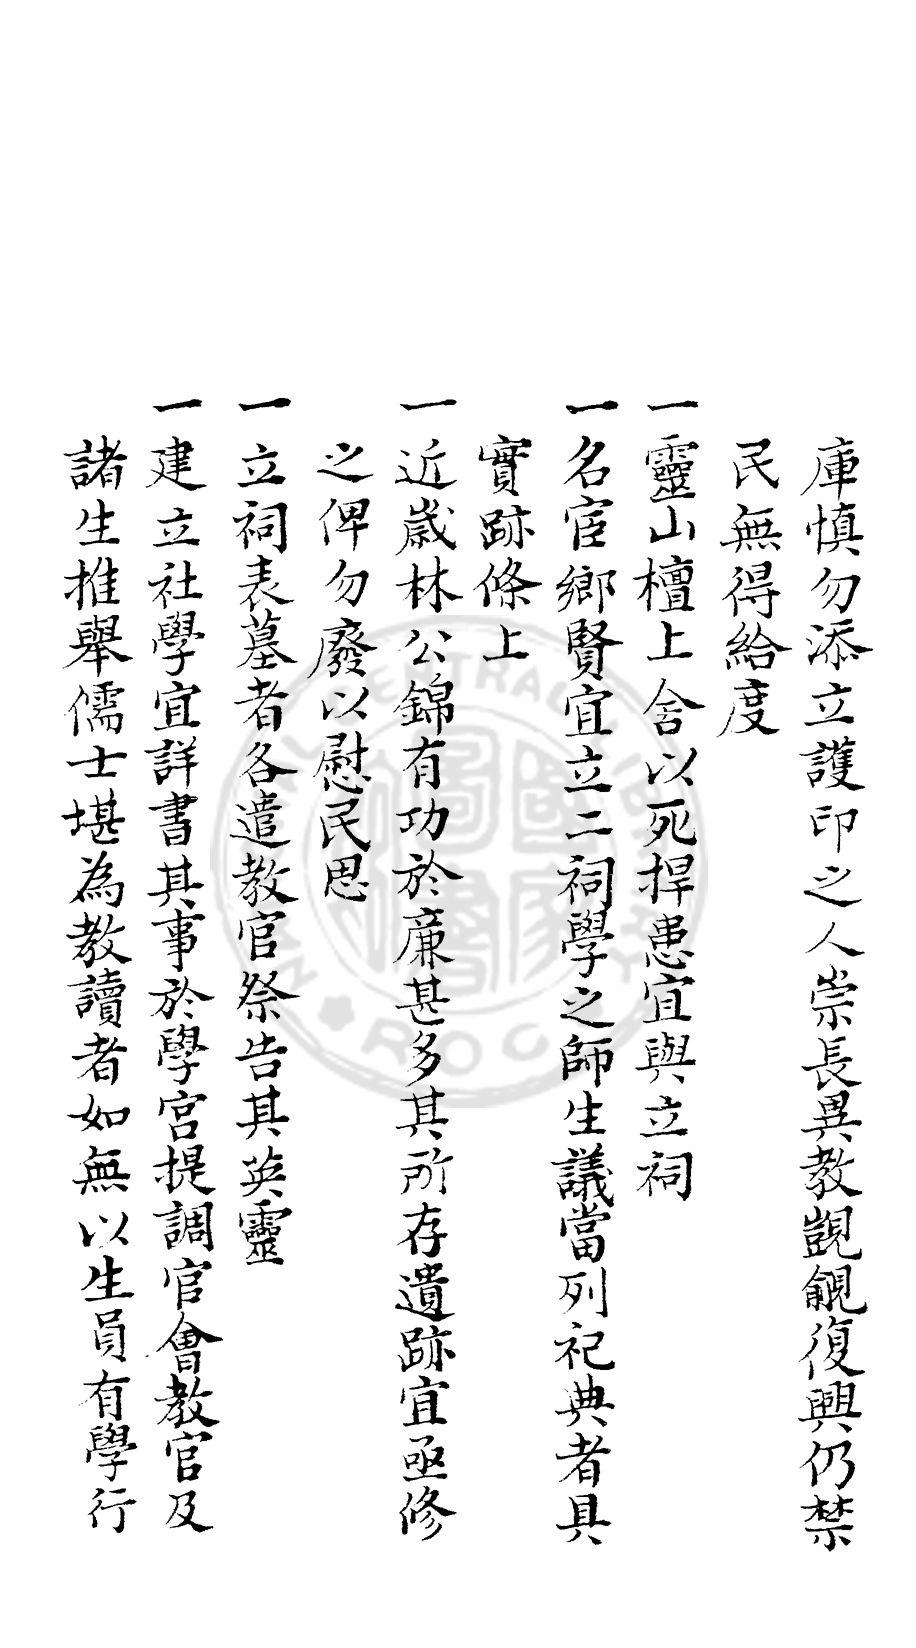 庫慎勿添立護印之人崇長異教覬覦復興仍禁
民無得給度
一靈山檀上舍以死捍患宜與立祠
一名宦鄉賢宜立二祠學之師生議當列祀典者具
實跡條上
一近歲林公錦有功於廉甚多其所存遺跡宜亟修
之俾勿廢以慰民思
一立祠表墓者各遣教官祭告其英靈
一建立社學宜詳書其事於學宮提調官會教官及
諸生推舉儒士堪為教讀者如無以生員有學行